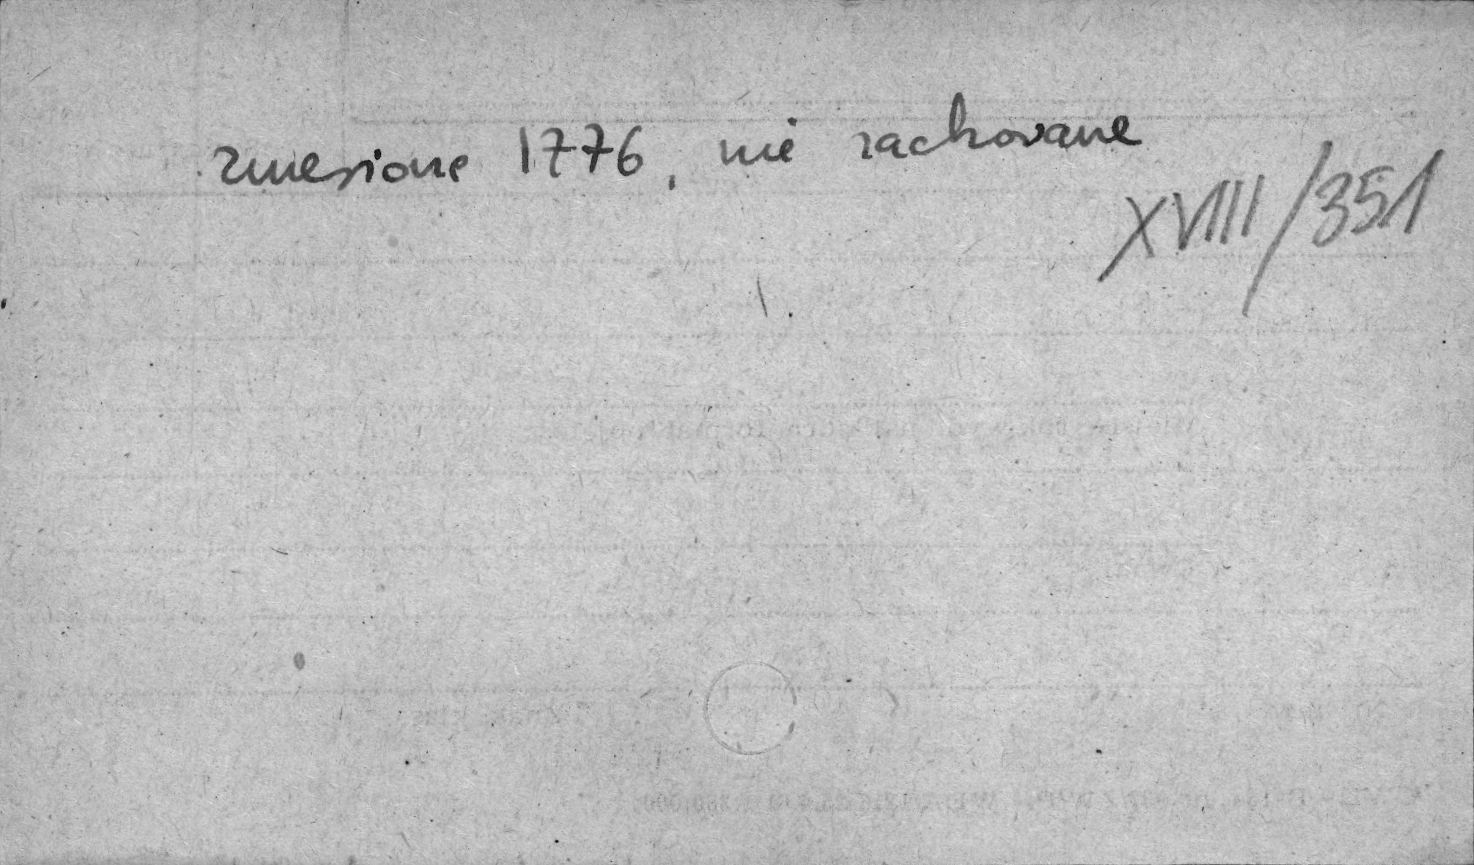 zniesione 1776, nie zachowane
XVIII/351